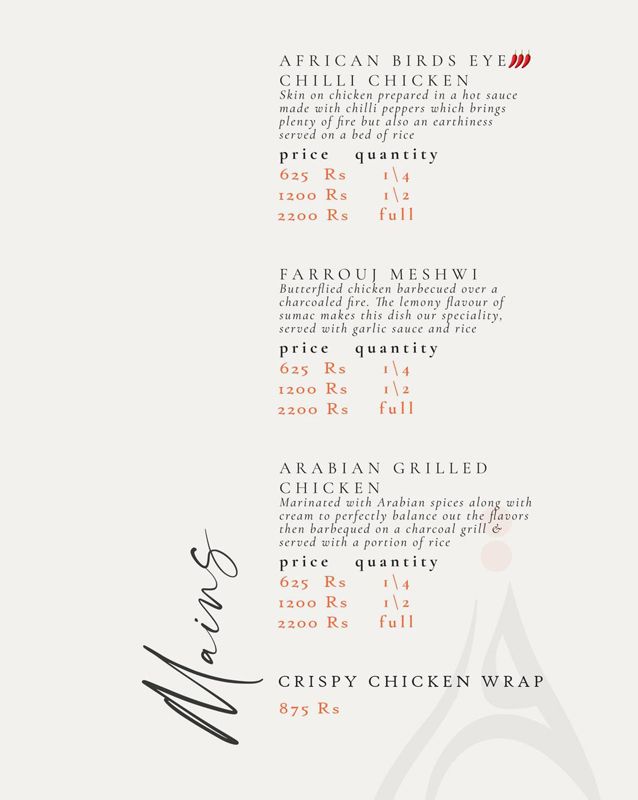 AFRICAN BIRDS EYE🌶🌶🌶
CHILLI CHICKEN
Skin on chicken prepared in a hot sauce
made with chilli peppers which brings
plenty of fire but also an earthiness
served on a bed of rice
price quantity
625 Rs 1\4
1200 Rs 1\2
2200 Rs full
FARROUJ MESHWI
Butterflied chicken barbecued over a
charcoaled fire. The lemony flavour of
sumac makes this dish our speciality,
served with garlic sauce and rice
price quantity
625 Rs 1\4
1200 Rs 1\2
2200 Rs full
ARABIAN GRILLED
CHICKEN
Marinated with Arabian spices along with
cream to perfectly balance out the flavors
then barbequed on a charcoal grill &
served with a portion of rice
price quantity
625 Rs 1\4
1200 Rs 1\2
2200 Rs full
Mains
CRISPY CHICKEN WRAP
875 Rs